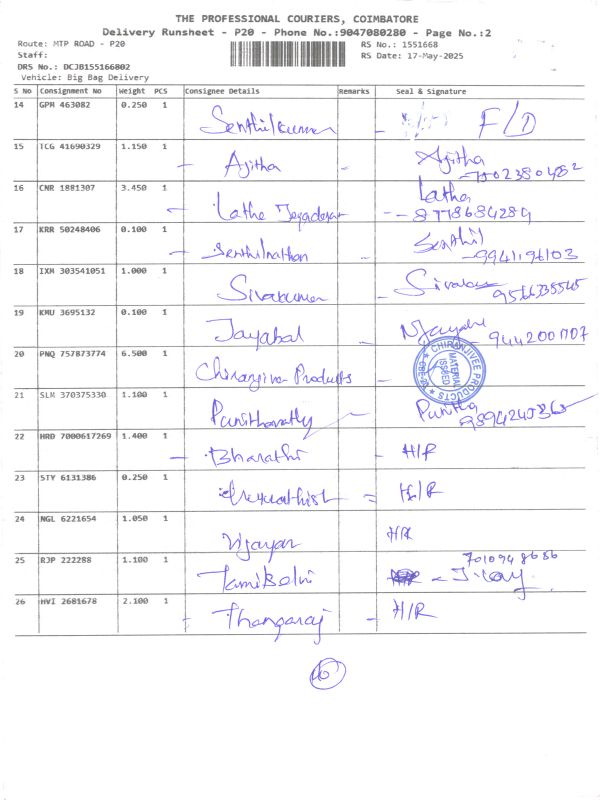 THE PROFESSIONAL COURIERS, COIMBATORE
Delivery Runsheet - P20 - Phone No.:9047080280 - Page No.:2
Route: MTP ROAD - P20 RS No.: 1551668
Staff: RS Date: 17-May-2025
DRS No.: DCJB155166802
Vehicle: Big Bag Delivery
S No Consignment No Weight PCS Consignee Details Remarks Seal & Signature
14 GPM 463082 0.250 1
Senthilkumar - F/D
15 TCG 41690329 1.150 1 Ajitha
- Ajitha -
16 CNR 1881307 3.450 1 Latha
- Latha Jegadesan - - 8778684289
17 KRR 50248406 0.100 1 Senthil
- Senthilnathan - 9941196103
18 IXM 303541051 1.000 1
Sivakumar - 9566335545
19 KMU 3695132 0.100 1
Jayabal - 9442001707
20 PNQ 757873774 6.500 1 CHIRANJIVEE PRODUCTS
MATERIAL ISSUED
Chiranjiva Products -
21 SLM 370375330 1.100 1 Punitha
Punithavathy -
22 HRD 7000617269 1.400 1
- Bharathi - H/R
23 STY 6131386 0.250 1
= H/R
24 NGL 6221654 1.050 1 H/R
Vijayan
25 RJP 222288 1.100 1 7010948686
Tamilselvi -
26 HVI 2681678 2.100 1
- Thangaraj - H/R